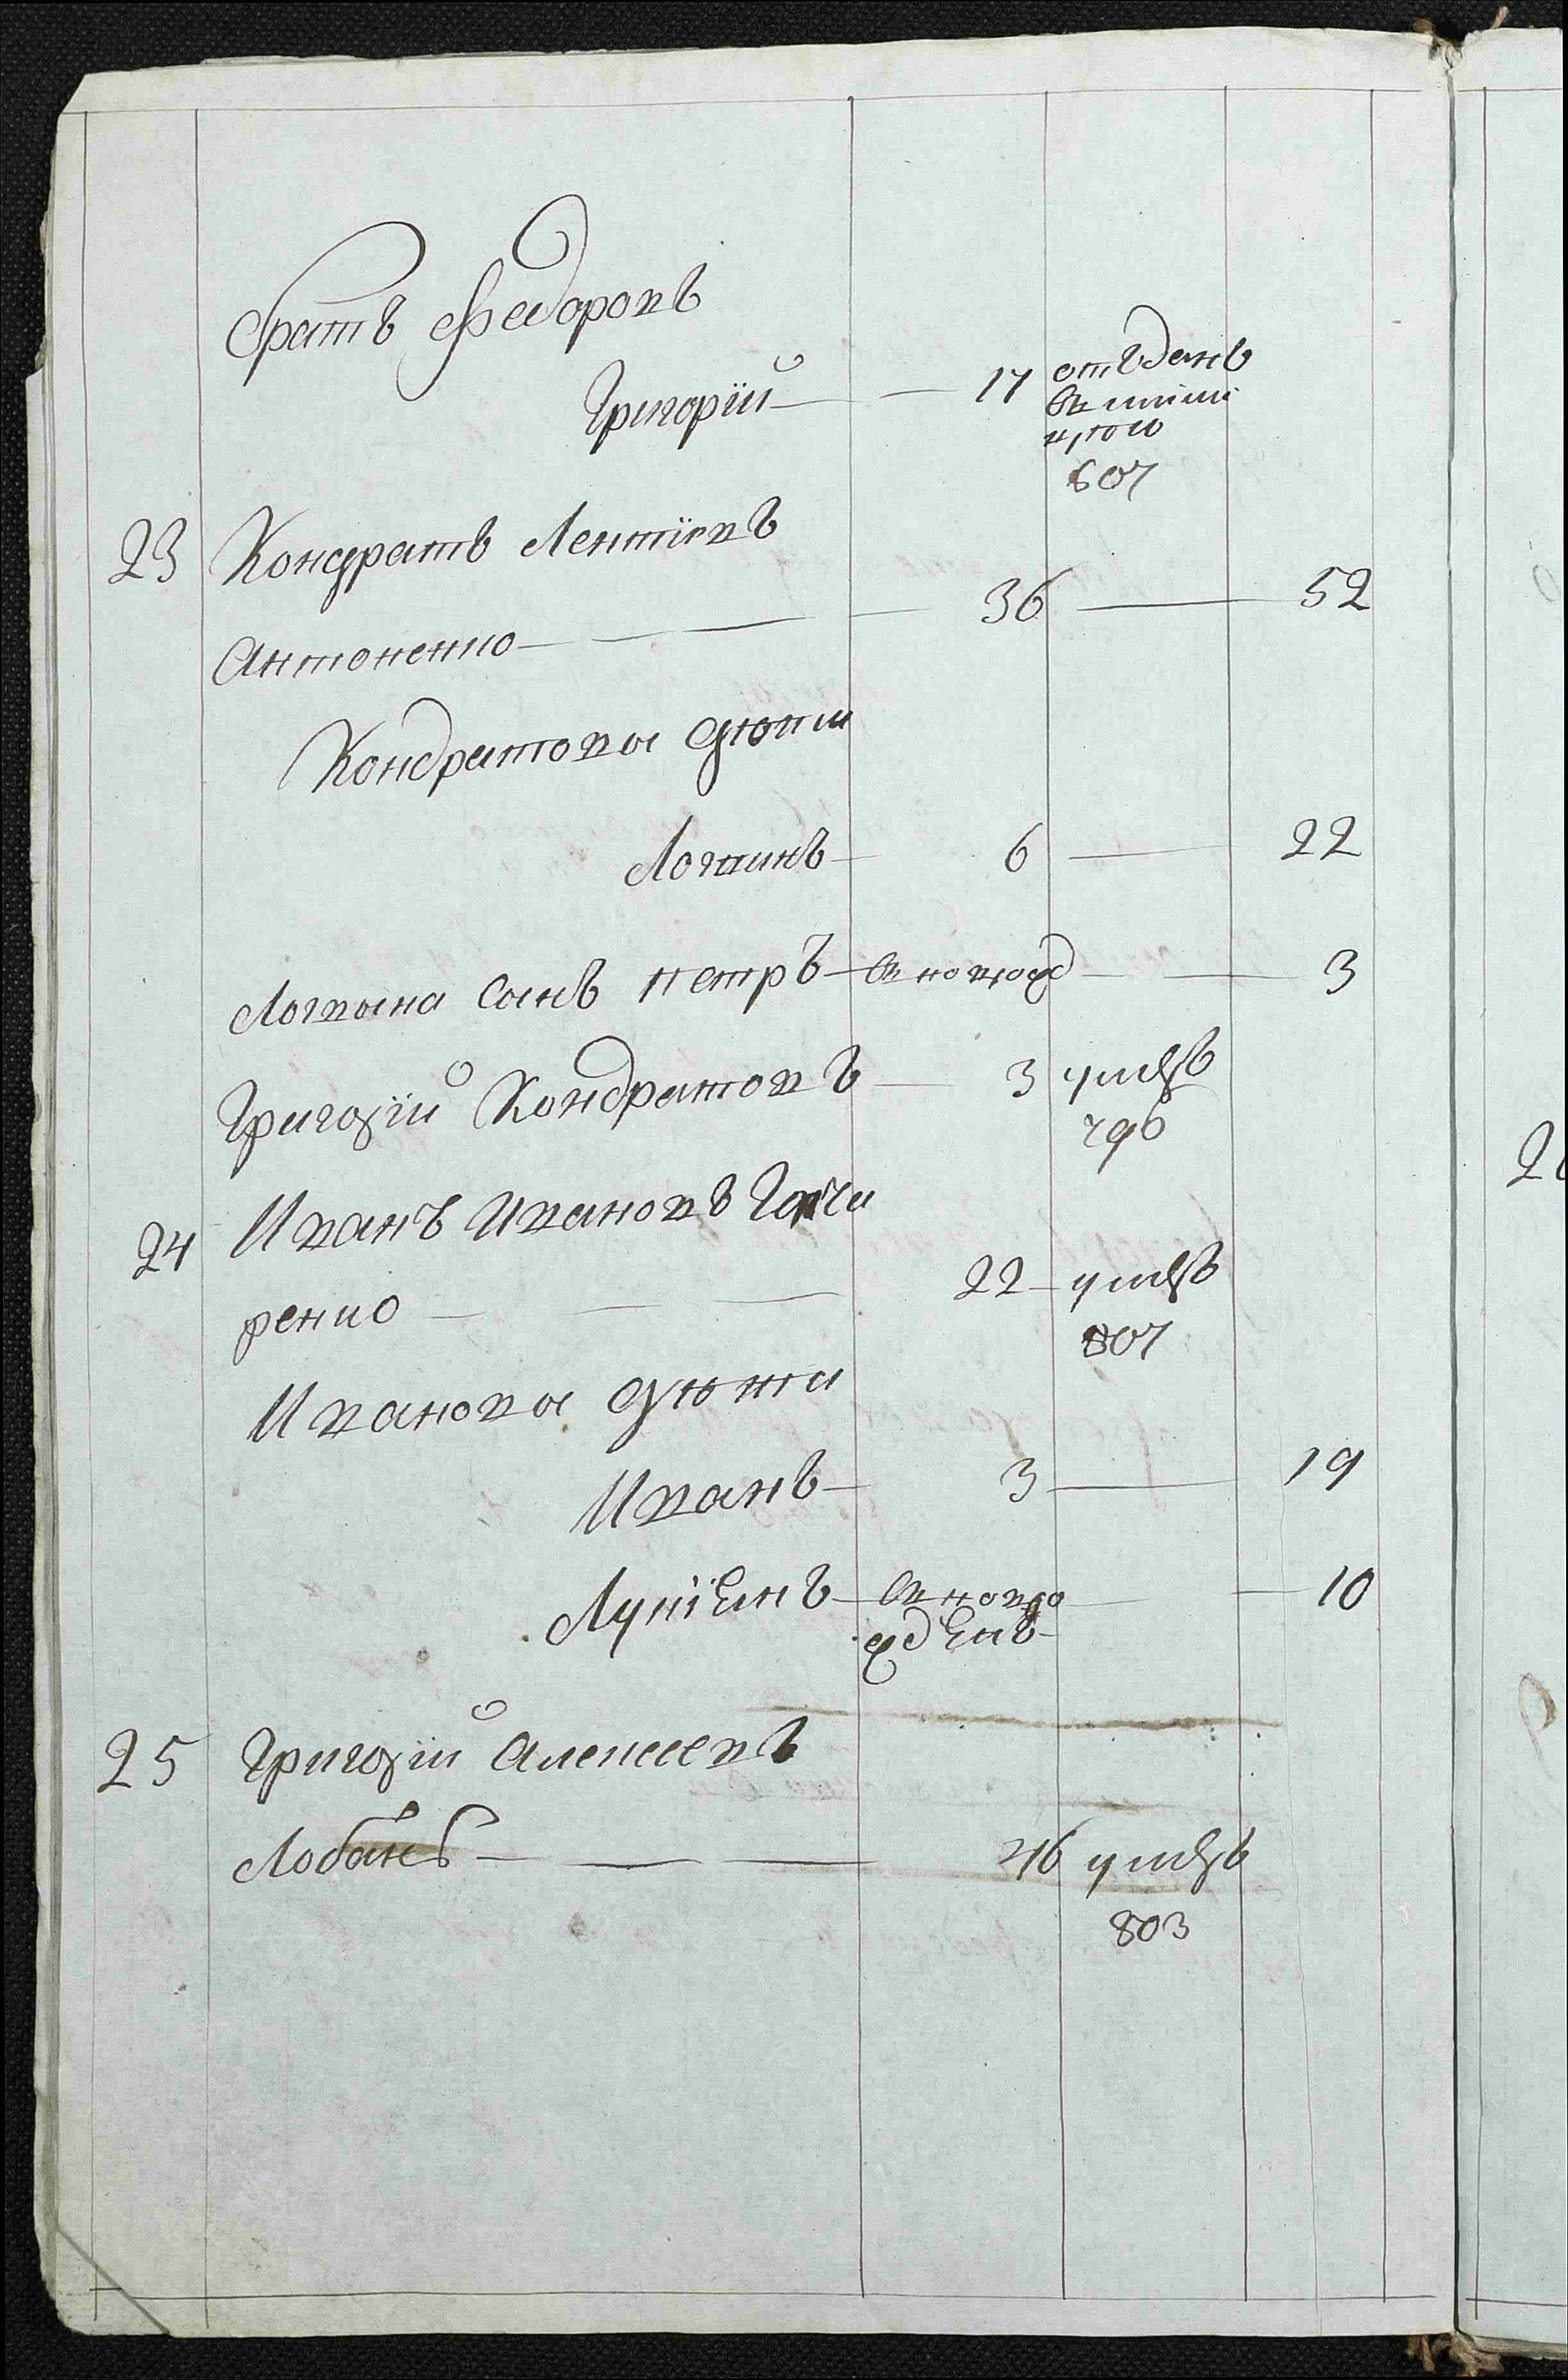 братъ Федоровъ
Григорій 17 отъданъ
въ мили
цыю
807
23 Кондратъ Леонтіевъ
Антоненко 36 52
Кондратовы дѣти
Логвинъ 6 22
Логвина сынъ Петръ вновьрожд 3
Григорій Кондратовъ 3 умеръ
796
24 Иванъ Ивановъ Гонча
ренко 22 умеръ
807
Ивановы дѣти
Иванъ 3 19
Лукіянъ вновьро 10
жденъ
25 Григорій Алексеевъ
Лобанъ 46 умеръ
803
2